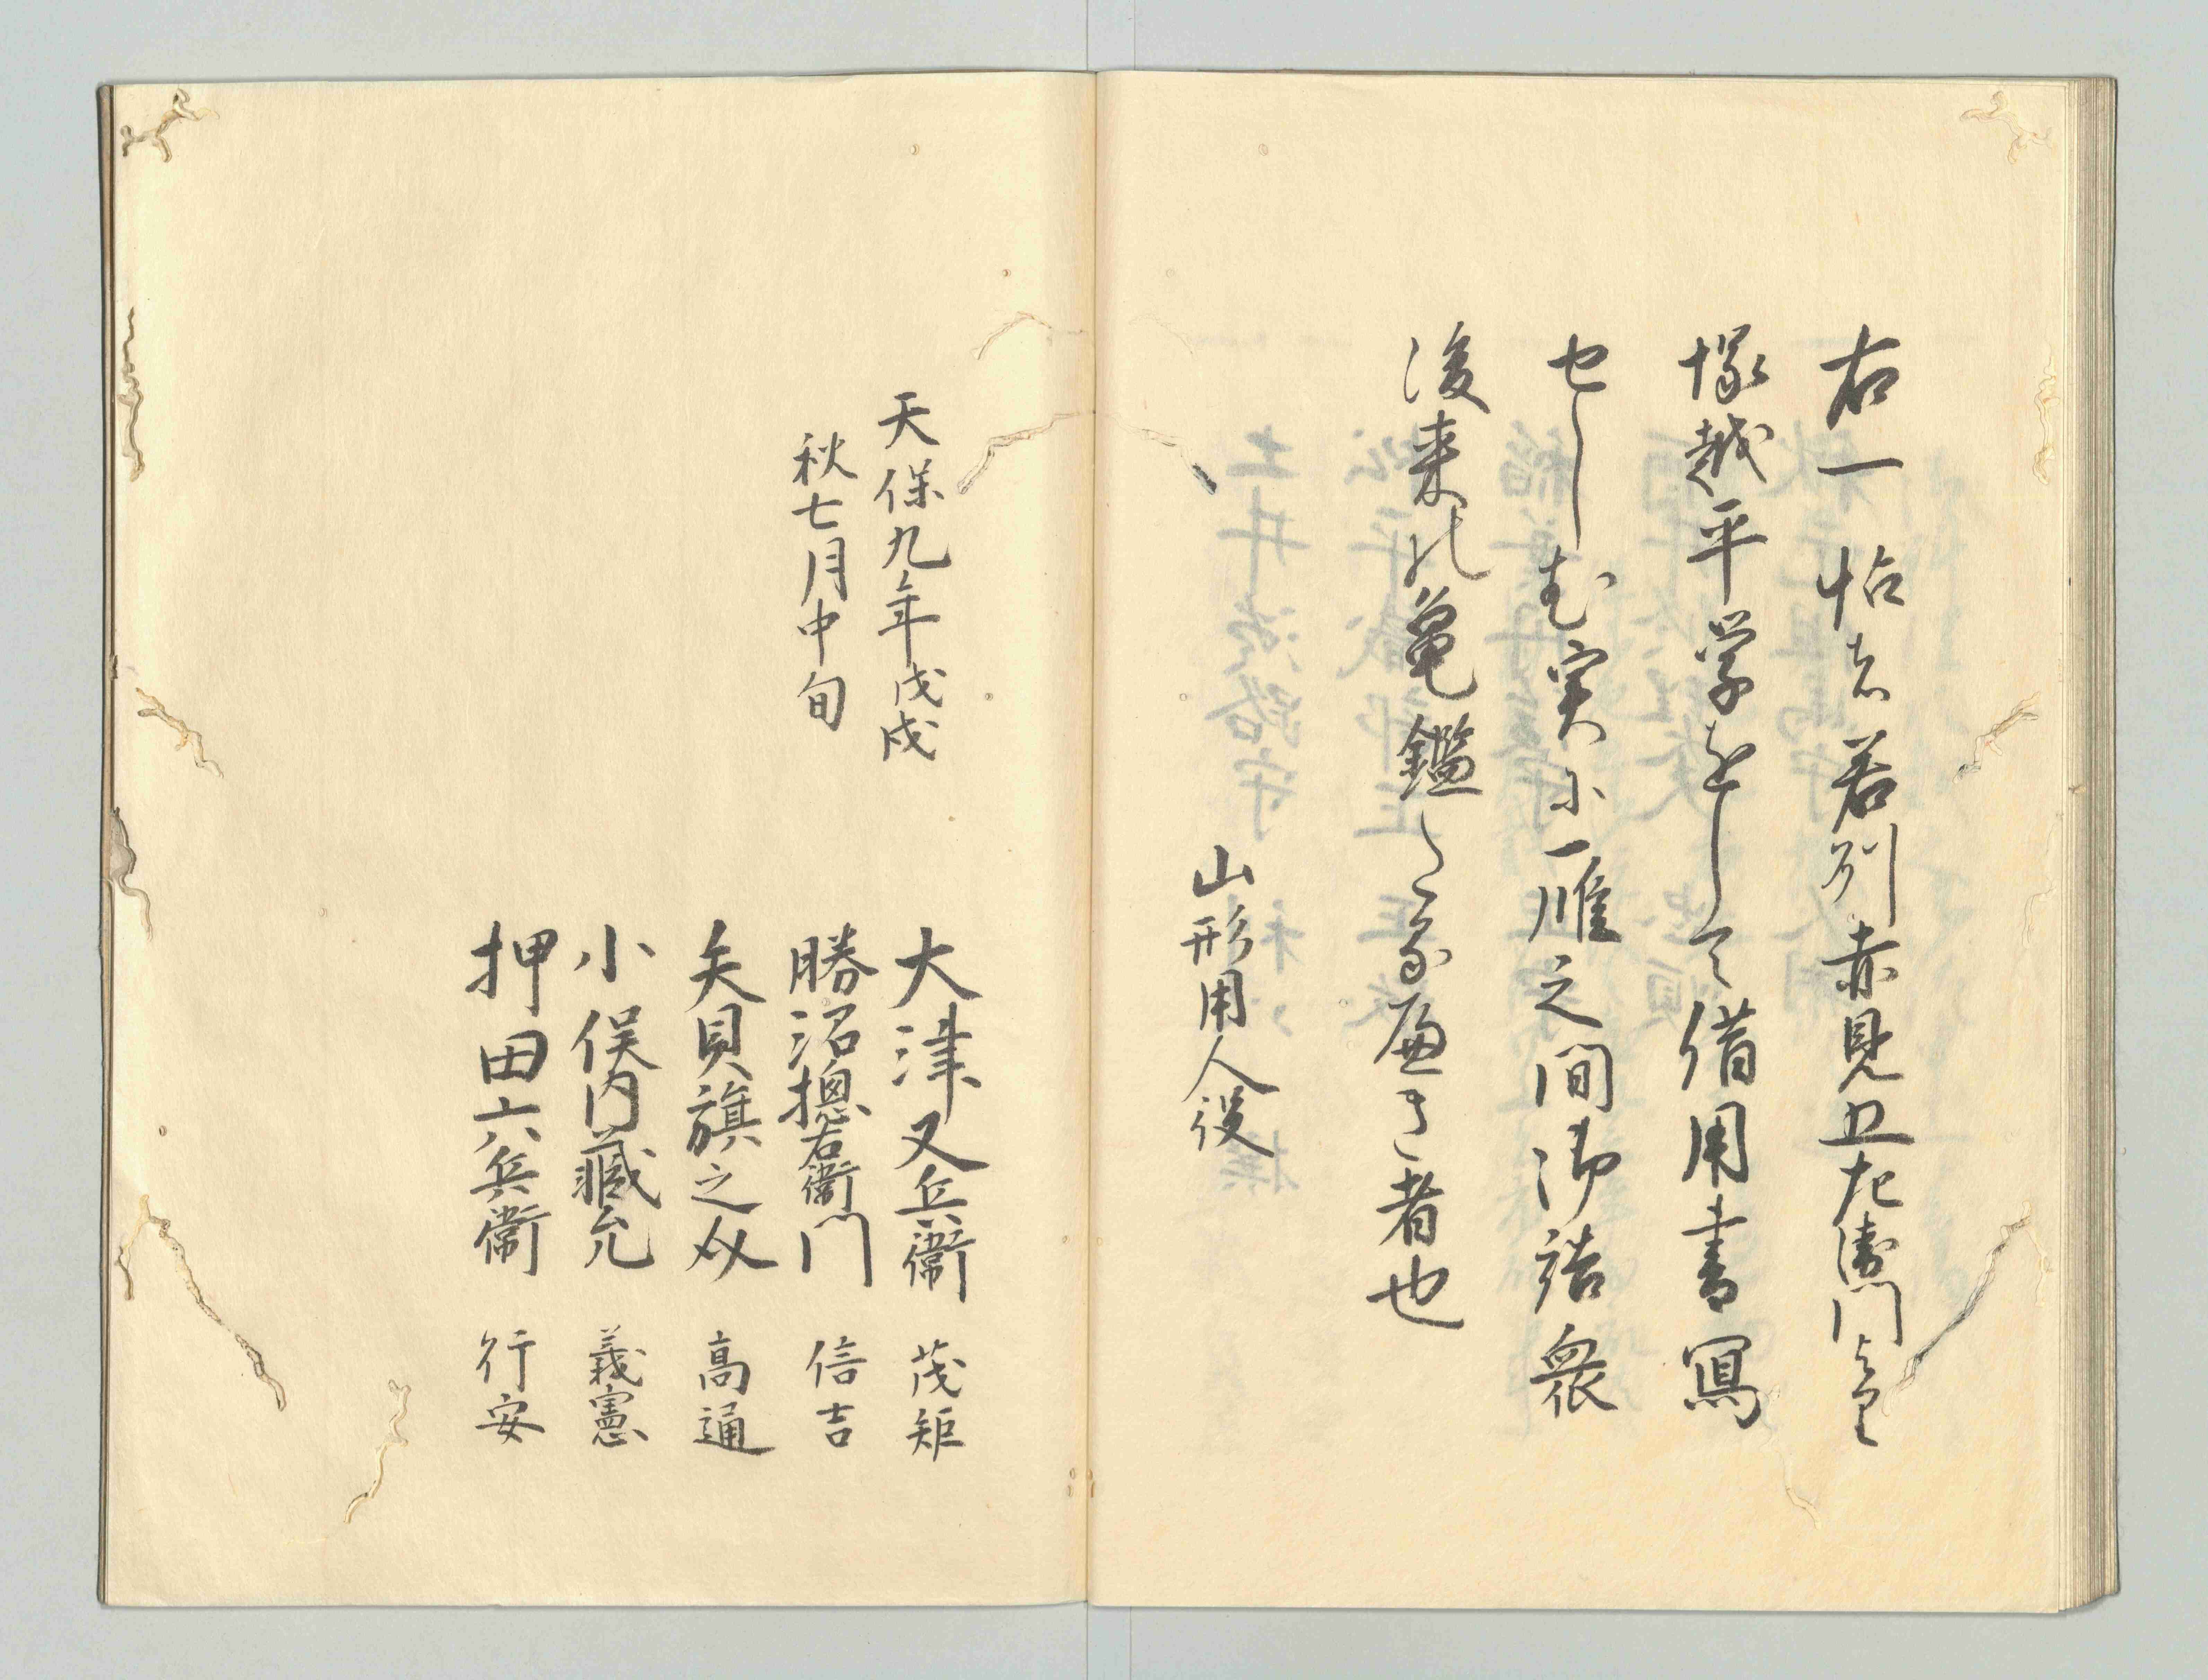 右一帖者若列赤見丑左衛門より
塚越平学をして借用書寫
せしむ実に一雁之間御諸衆
後来の亀鑑たるべき者也
山形用人役
天保九年戊戌
秋七月中旬
大津又兵衛 茂矩
勝沼摠右衛門 信吉
矢貝旗之𠆢 高通
小俣内藏允 義憲
押田六兵衛 行安